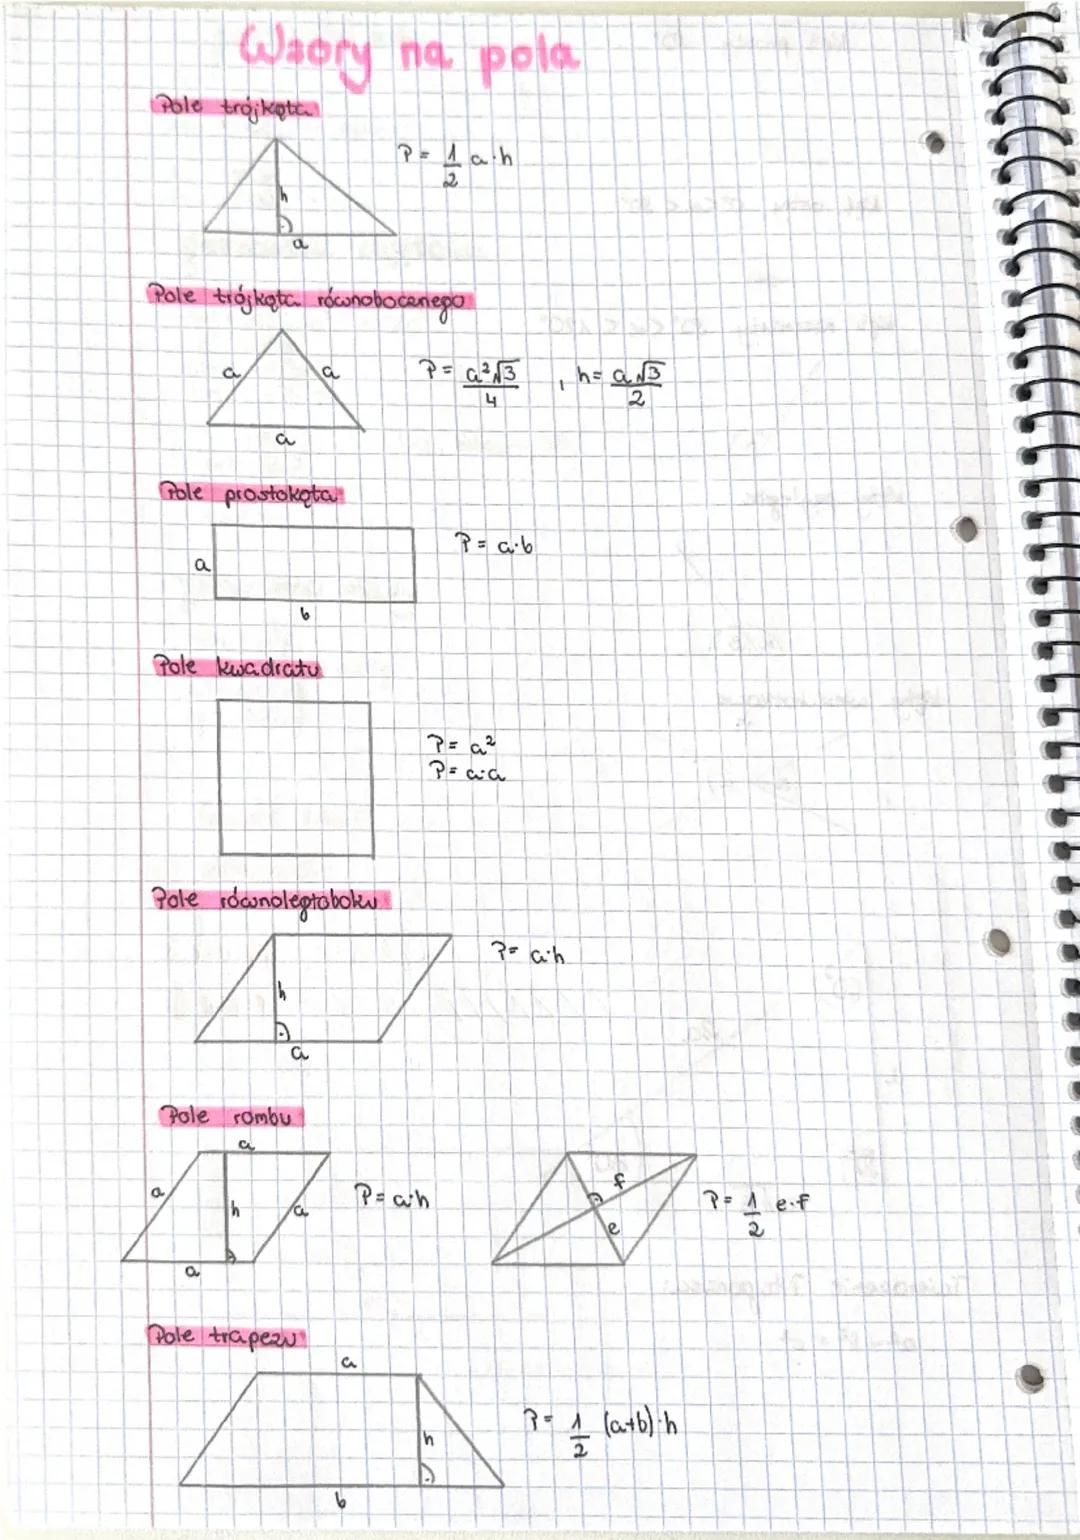 Wzory na pola
Pole trójkąta
P = 1/2 a·h
h
a
Pole trójkąta równobocznego
a a
a
P = a²√3/4 , h = a√3/2
Pole prostokąta
a
b
P = a·b
Pole kwadratu
P = a²
P = a·a
Pole równoległoboku
h
a
P = a·h
Pole rombu
a
a h a
a
P = a·h
f
e
P = 1/2 e·f
Pole trapezu
a
h
b
P = 1/2 (a+b)·h